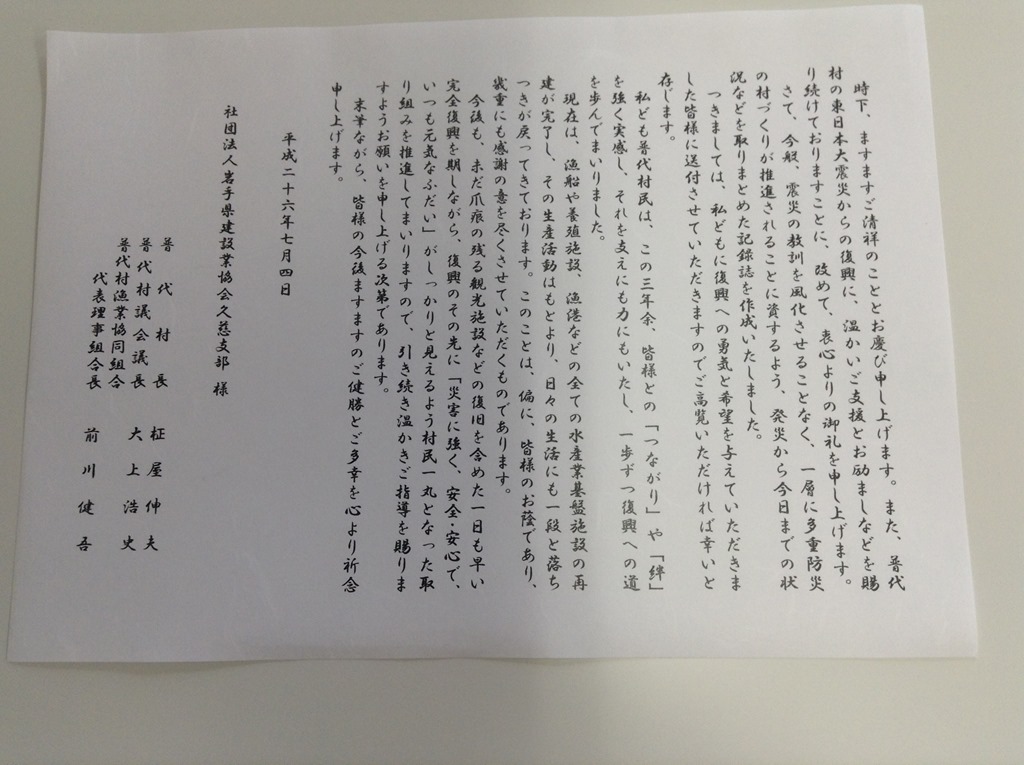 時下、ますますご清祥のこととお慶び申し上げます。また、普代
村の東日本大震災からの復興に、温かいご支援とお励ましなどを賜
り続けておりますことに、改めて、衷心よりの御礼を申し上げます。
さて、今般、震災の教訓を風化させることなく、一層に多重防災
の村づくりが推進されることに資するよう、発災から今日までの状
況などを取りまとめた記録誌を作成いたしました。
つきましては、私どもに復興への勇気と希望を与えていただきま
した皆様に送付させていただきますのでご高覧いただければ幸いと
存じます。
私ども普代村民は、この三年余、皆様との「つながり」や「絆」
を強く実感し、それを支えにも力にもいたし、一歩ずつ復興への道
を歩んでまいりました。
現在は、漁船や養殖施設、漁港などの全ての水産業基盤施設の再
建が完了し、その生産活動はもとより、日々の生活にも一段と落ち
つきが戻ってきております。このことは、偏に、皆様のお蔭であり、
幾重にも感謝の意を尽くさせていただくものであります。
今後も、未だ爪痕の残る観光施設などの復旧を含めた一日も早い
完全復興を期しながら、復興のその先に「災害に強く、安全・安心で、
いつも元気なふだい」がしっかりと見えるよう村民一丸となった取
り組みを推進してまいりますので、引き続き温かきご指導を賜りま
すようお願いを申し上げる次第であります。
末筆ながら、皆様の今後ますますのご健勝とご多幸を心より祈念
申し上げます。
平成二十六年七月四日
社団法人岩手県建設業協会久慈支部 様
普代村長 柾屋伸夫
普代村議会議長 大上浩史
普代村漁業協同組合
代表理事組合長 前川健吾